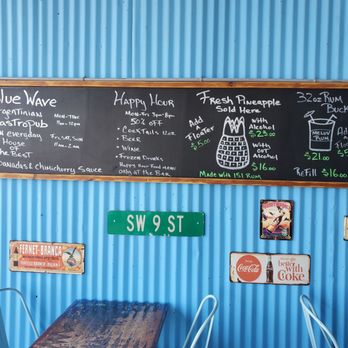 Blue Wave
Argentinian
GastroPub
Open everyday
House
of
the Best
Empanadas & Chimichurry Sauce
Happy Hour
Mon-Fri 3pm-8pm
50% off
• Cocktails 12oz
• Beer
• Wine
• Frozen Drinks
Happy Hour Food Menu
Only at the Bar
Fresh Pineapple
Sold Here
Add
A
Floater
$5.00
with
Alcohol
$25.00
with
out
Alcohol
$16.00
Made with 151 Rum
32oz Rum
Buck
Add
A
Float
$5
Melly
Rum
$21.00
ReFill $16.00
SW 9 ST
FERNET-BRANCA
Coca-Cola
better
with
Coke